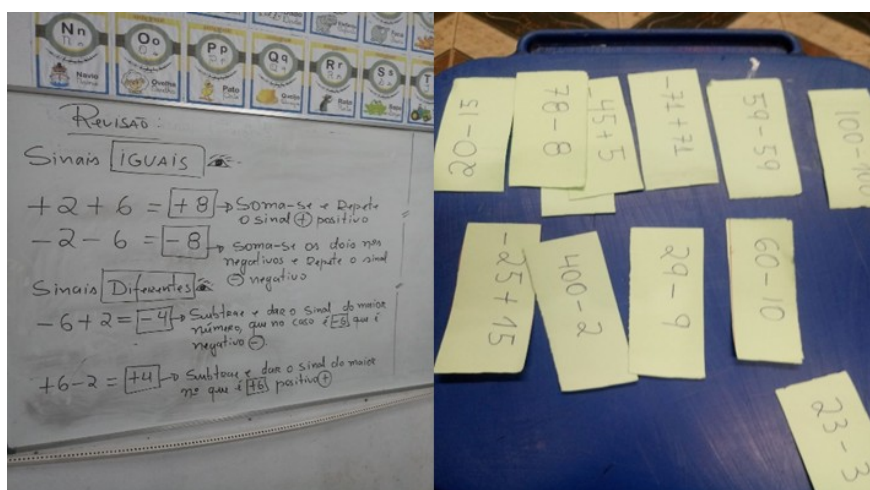 Nn
Oo
Pp
Qq
Rr
Ss
T
Navio
Ovelha
Pato
Queijo
Rato
Sapo
REVISÃO:
Sinais IGUAIS
+2+6 = +8 → Soma-se e Repete
o sinal + positivo
-2-6 = -8 → Soma-se os dois nos
negativos e repete o sinal
- negativo
Sinais Diferentes
-6+2 = -4 → Subtrae e dar o sinal do maior
número, que no caso é -6 que é
negativo -.
+6-2 = +4 → Subtrae e dar o sinal do maior
nº que é +6 positivo +
20-15
78-8
-45+5
-71+71
59-59
100-100
-25+15
400-2
29-9
60-10
23-3